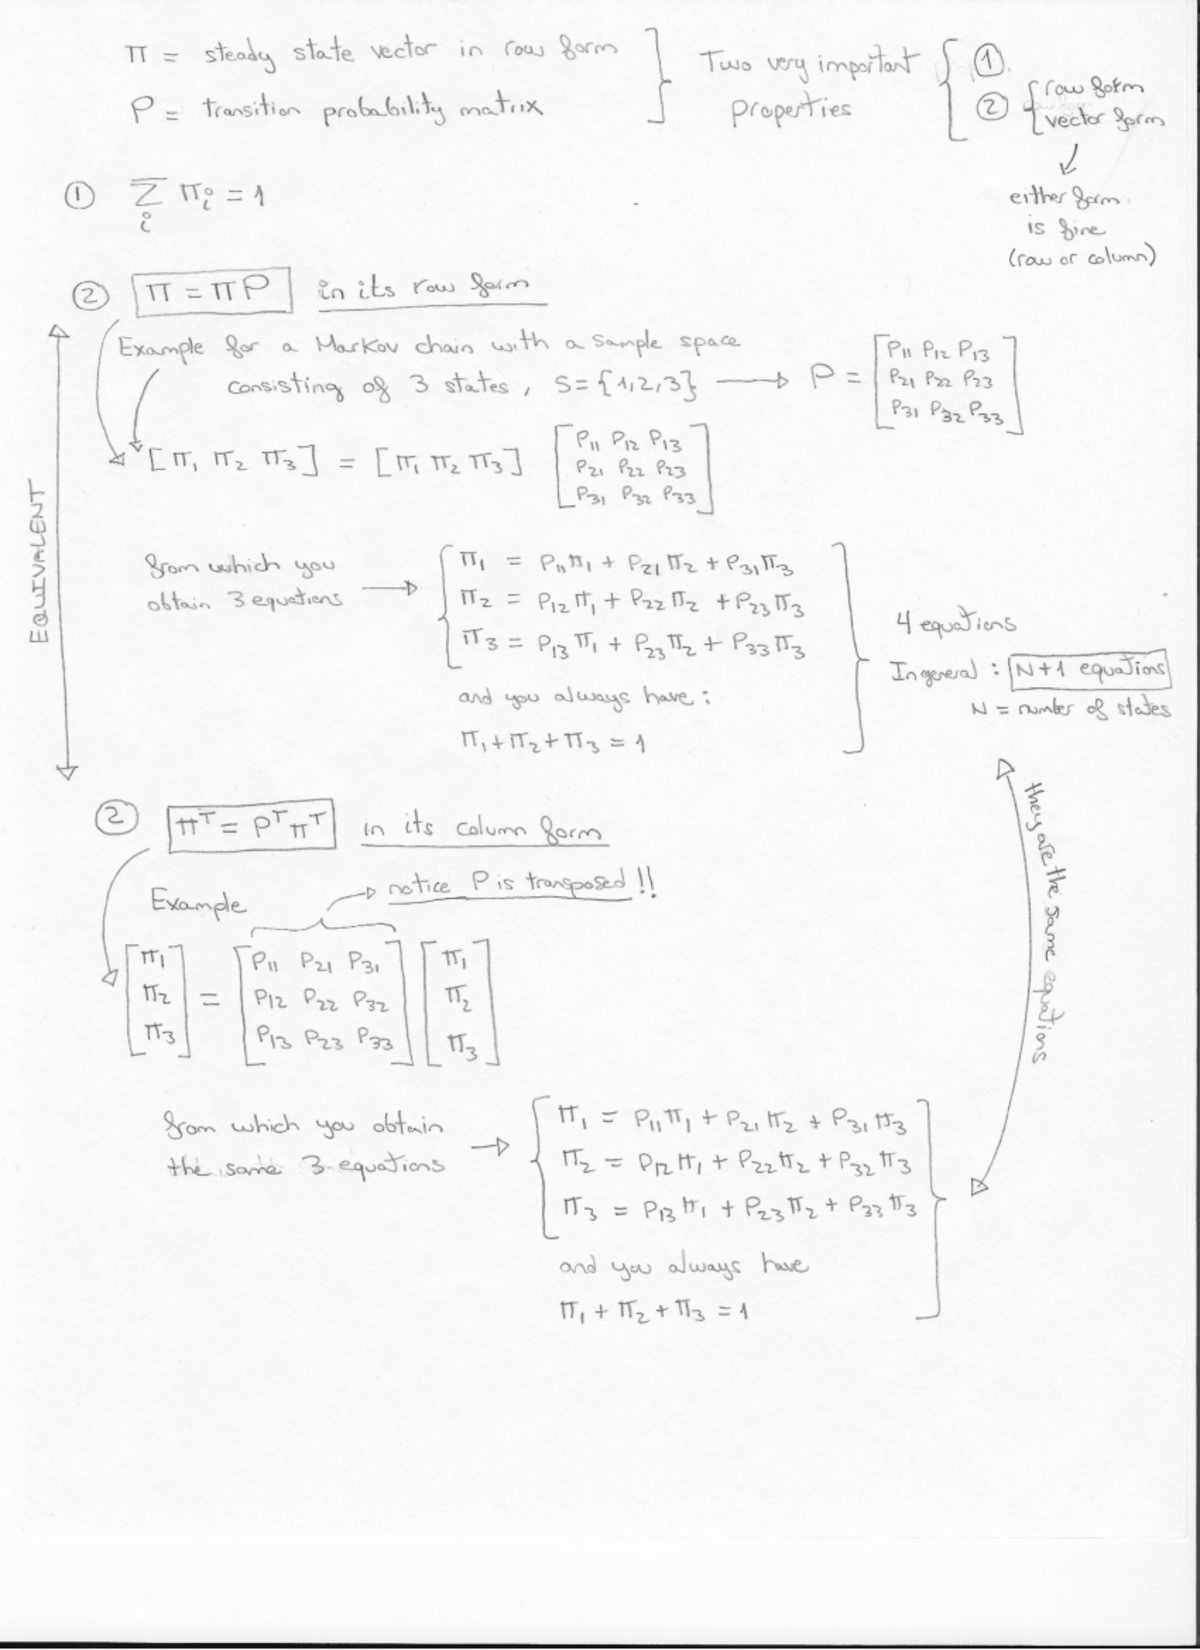 π = steady state vector in row form
P = transition probability matrix
Two very important
properties
①
② row form
vector form
either form
is fine
(row or column)
① Σ πi = 1
i
② π = πP in its row form
Example for a Markov chain with a sample space
consisting of 3 states, S={1,2,3} → P = [P11 P12 P13
P21 P22 P23
P31 P32 P33]
[π1 π2 π3] = [π1 π2 π3] [P11 P12 P13
P21 P22 P23
P31 P32 P33]
EQUIVALENT
from which you
obtain 3 equations →
π1 = P11π1 + P21π2 + P31π3
π2 = P12π1 + P22π2 + P23π3
π3 = P13π1 + P23π2 + P33π3
and you always have:
π1+π2+π3 = 1
4 equations
In general : N+1 equations
N = number of states
they are the same equations
② πT = PTπT in its column form
Example
→ notice P is transposed!!
[π1
π2
π3] = [P11 P21 P31
P12 P22 P32
P13 P23 P33] [π1
π2
π3]
from which you obtain
the same 3 equations →
π1 = P11π1 + P21π2 + P31π3
π2 = P12π1 + P22π2 + P32π3
π3 = P13π1 + P23π2 + P33π3
and you always have
π1 + π2 + π3 = 1